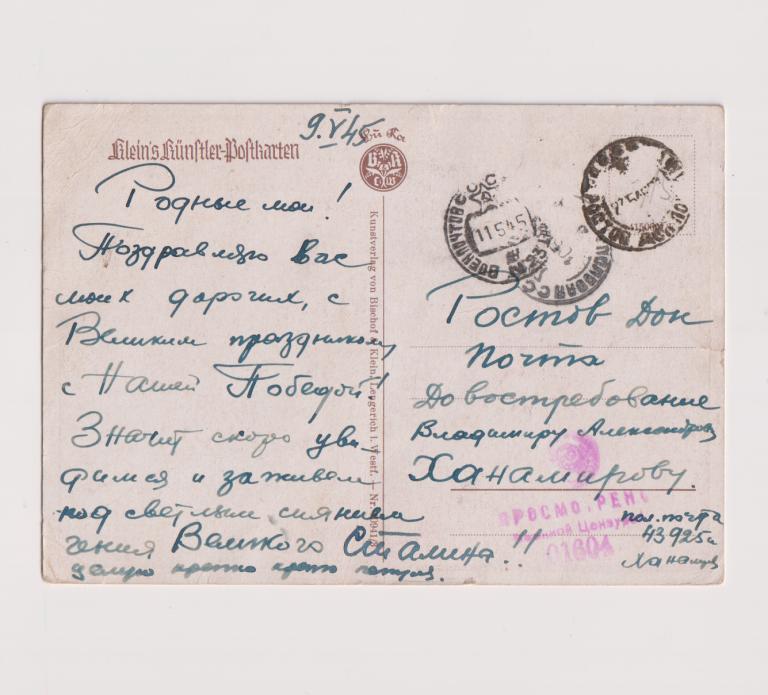 9.V 45
Klein's Künstler-Postkarten
Родные мои!
Поздравляю Вас
моих дорогих, с
Великим праздником,
с Нашей Победой!
Значит скоро уви-
димся и заживем
под светлым сиянием
гения Великого Сталина!!
целую крепко крепко
Kunstverlag von Bischof & Klein, Lengerich i. Westf. — Nr.
11 5 45
Ростов Дон
Почта
До востребование
Владимиру Александров
Ханамирову.
ПРОСМОТРЕНО
Военной Цензурой
01604
пол. почта
43925